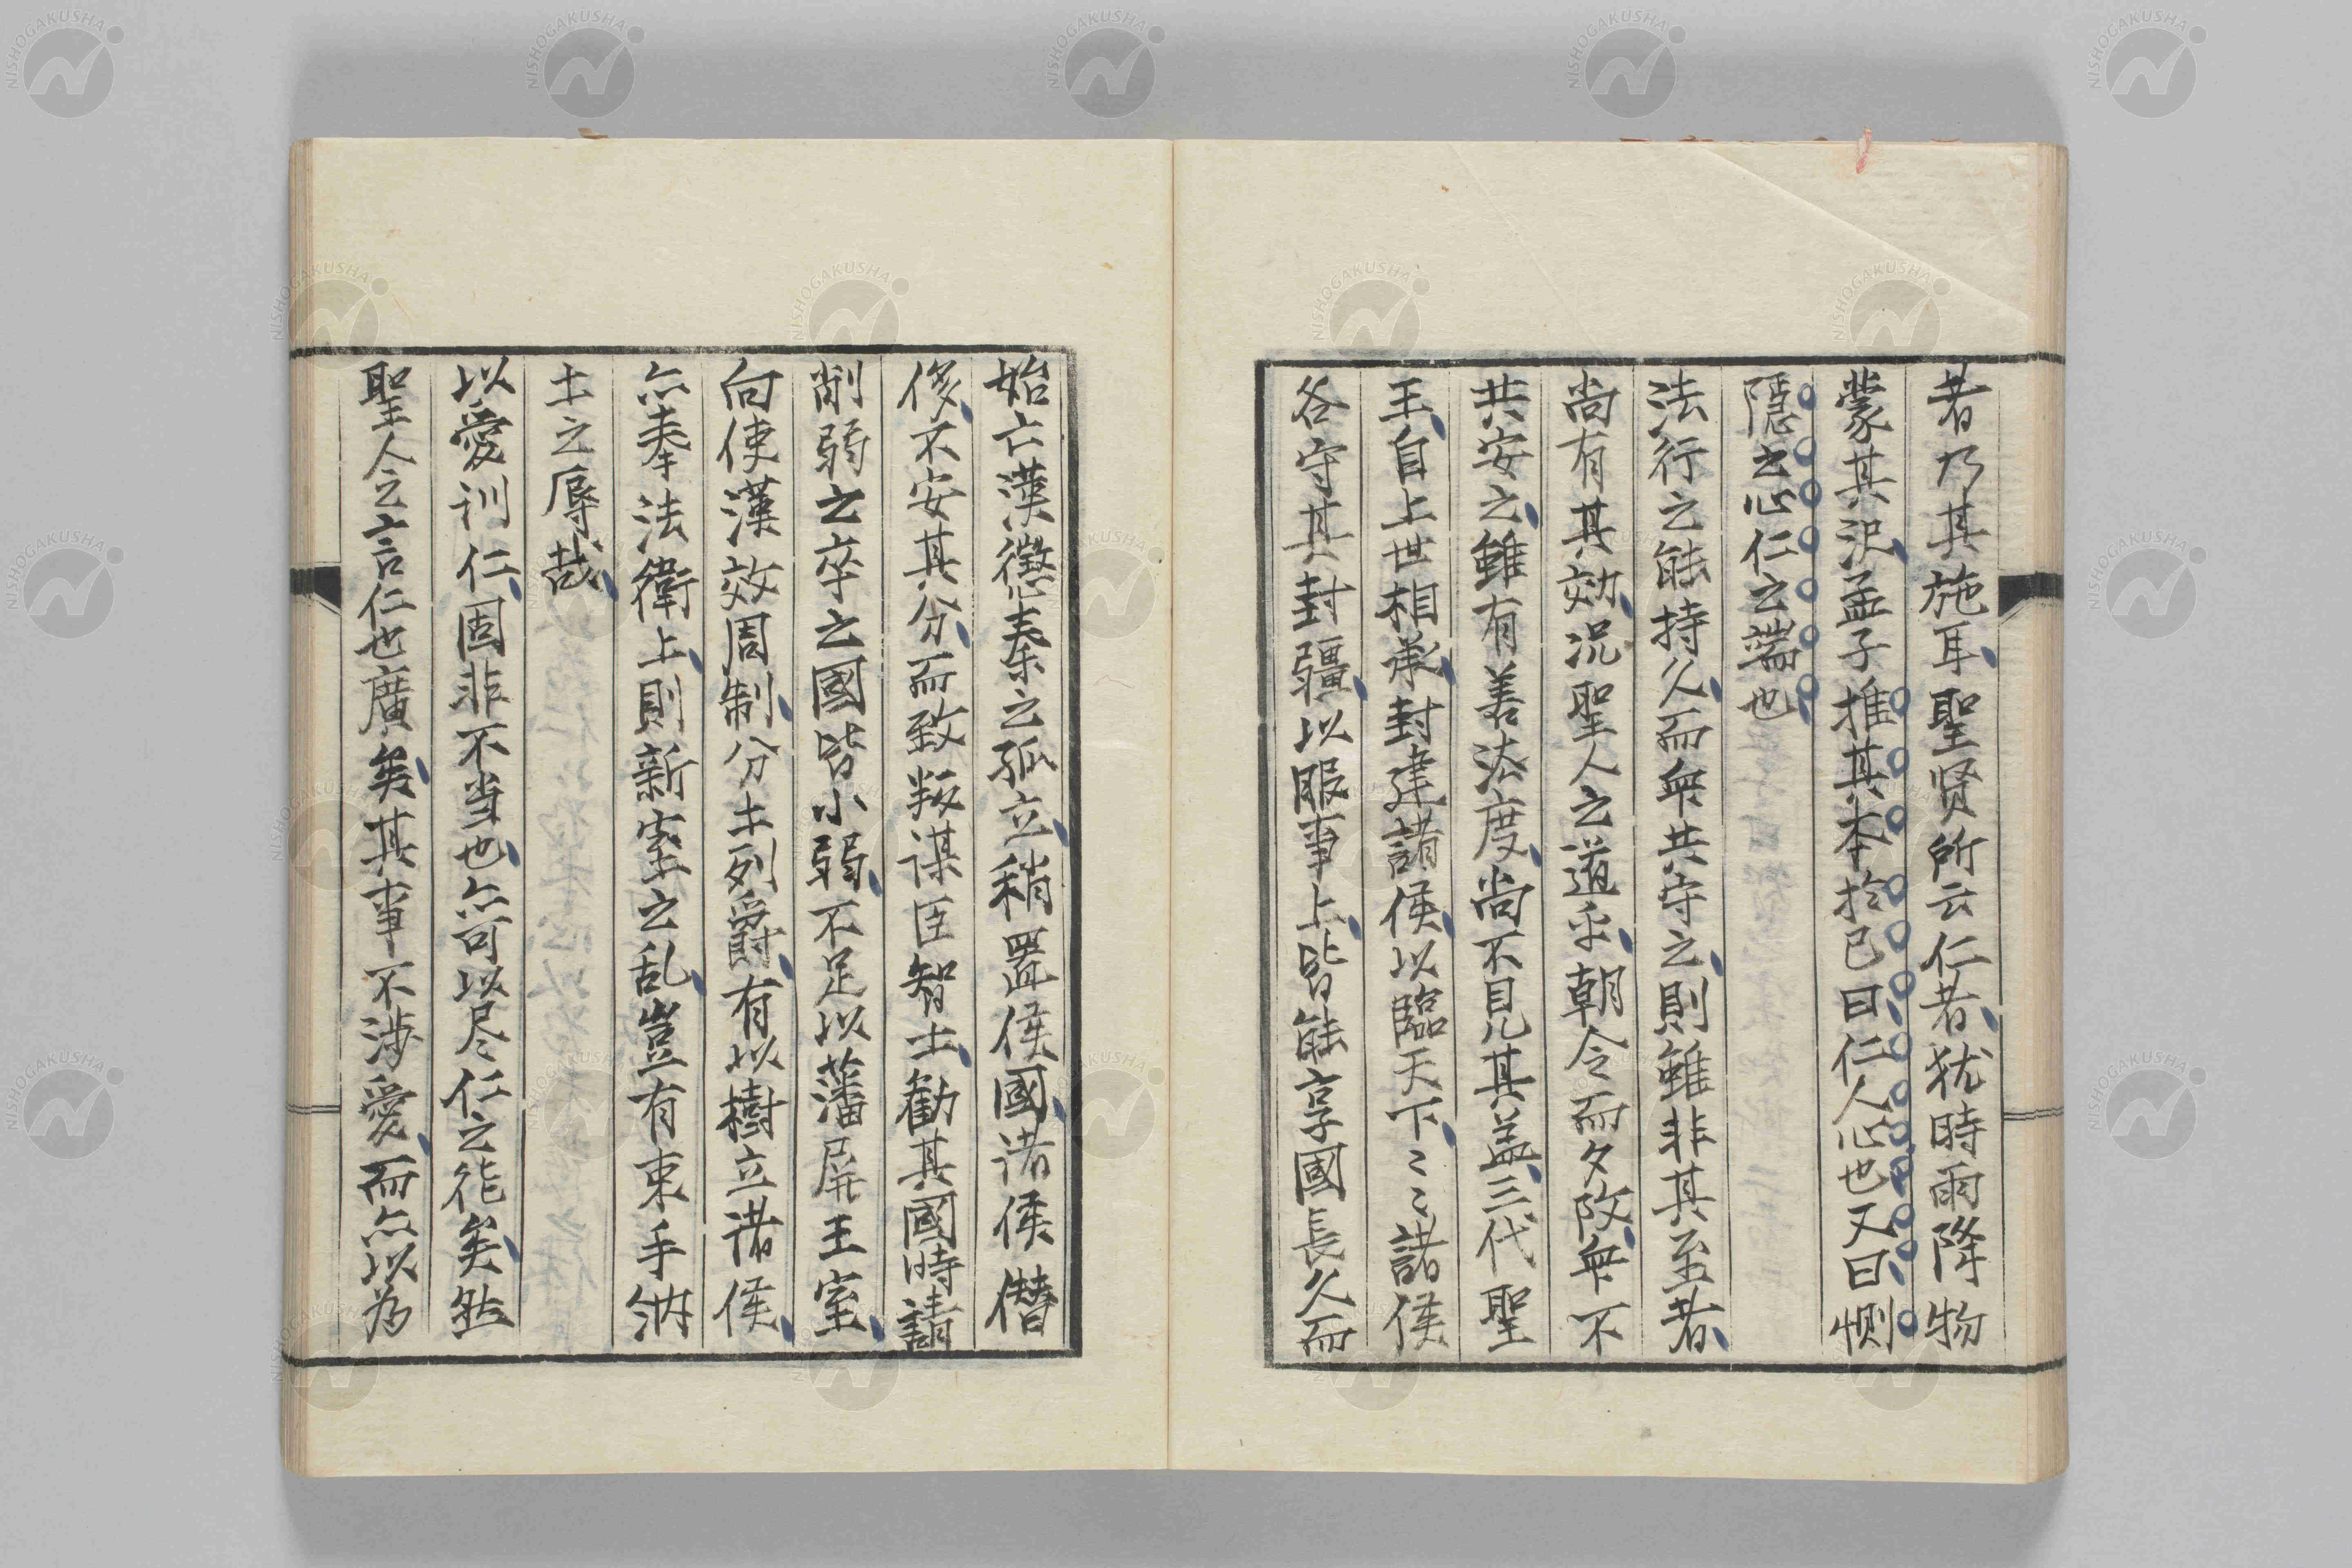 者乃其施耳聖贤所云仁者犹時雨降物
蒙其沢孟子推其本於己曰仁人心也又曰惻
隠之心仁之端也
法行之能持久而無共守之則雖非其至者
尚有其効況聖人之道乎朝令而夕改無不
共安之雖有善法度尚不見其盖三代聖
王自上世相承封建諸侯以臨天下〻〻諸侯
各守其封疆以服事上皆能享國長久而
始亡漢懲秦之孤立稍置侯國诸侯僭
侈不安其分而致叛谋臣智士勸其國時請
削弱之卒之國皆小弱不足以藩屏王室
向使漢效周制分土列爵有以樹立诸侯
亦奉法衛上則新室之乱豈有束手納
土之辱哉
以愛训仁固非不当也亦可以尽仁之徳矣然
聖人之言仁也廣矣其事不渉愛而亦以為